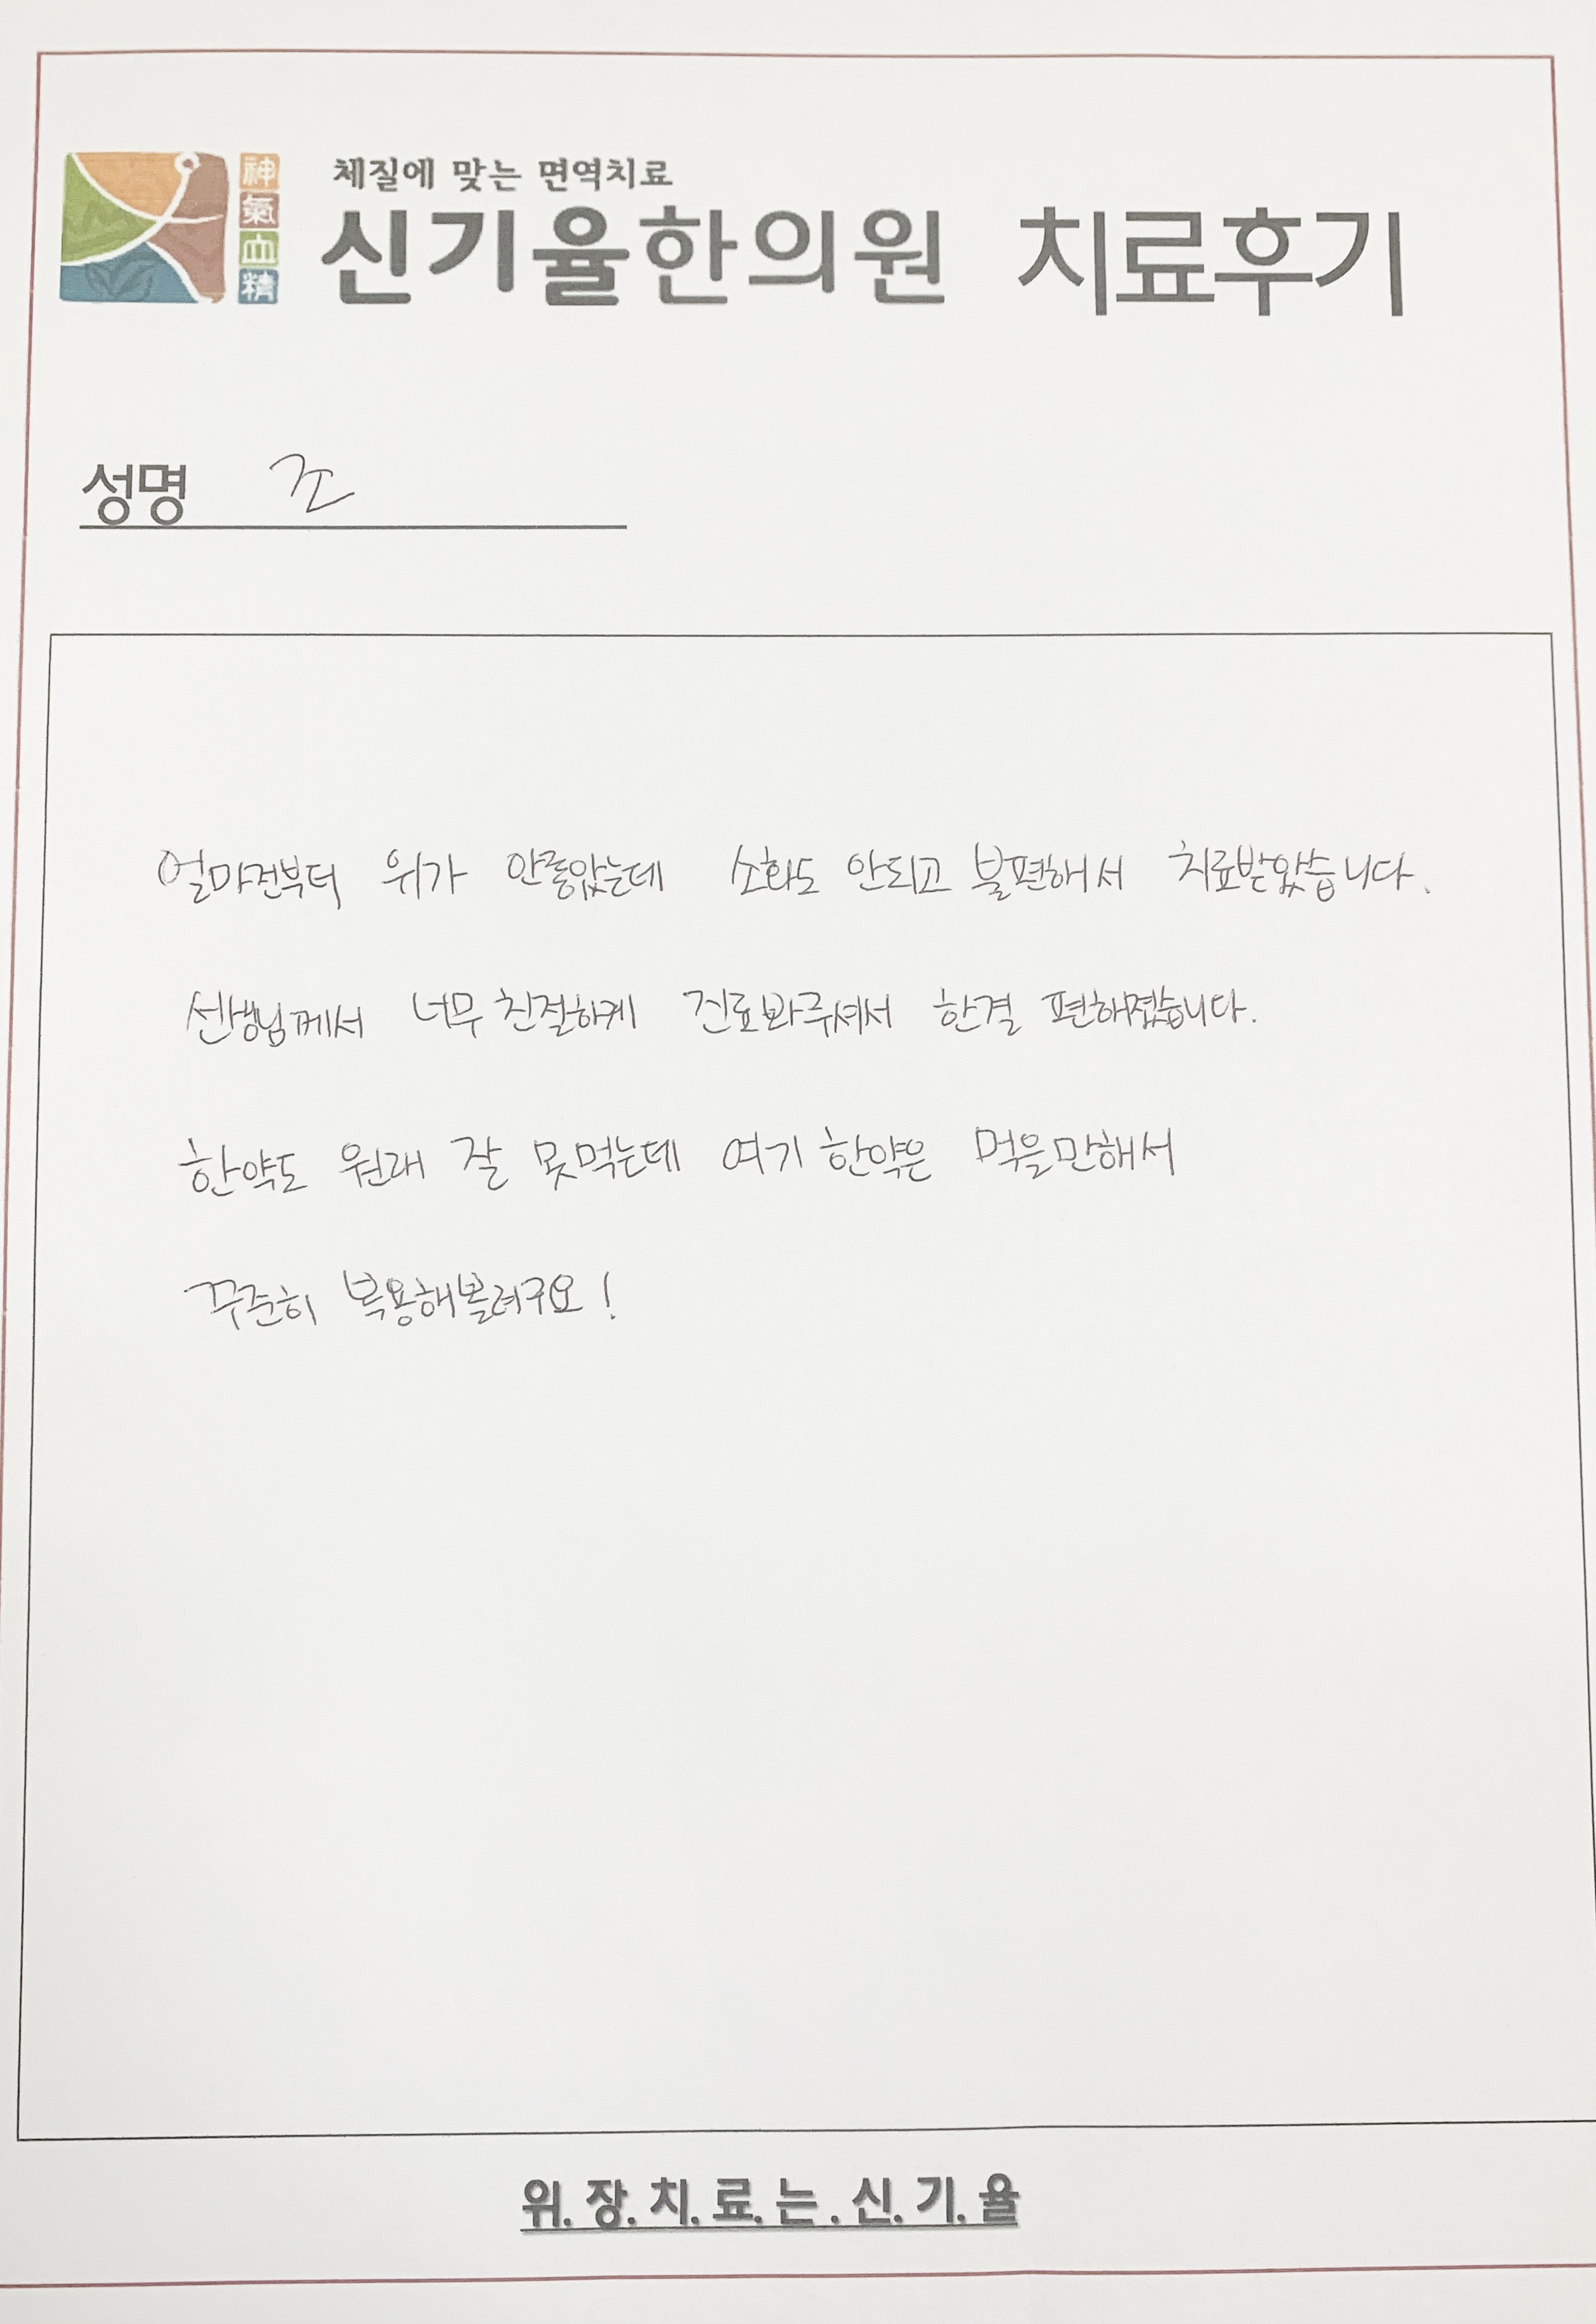 神
氣
血
精
체질에 맞는 면역치료
신기율한의원 치료후기
성명 조
얼마전부터 위가 안좋았는데 소화도 안되고 불편해서 치료받았습니다.
선생님께서 너무 친절하게 진료봐주셔서 한결 편해졌습니다.
한약도 원래 잘 못먹는데 여기 한약은 먹을만해서
꾸준히 복용해볼려구요!
위.장.치.료.는.신.기.율